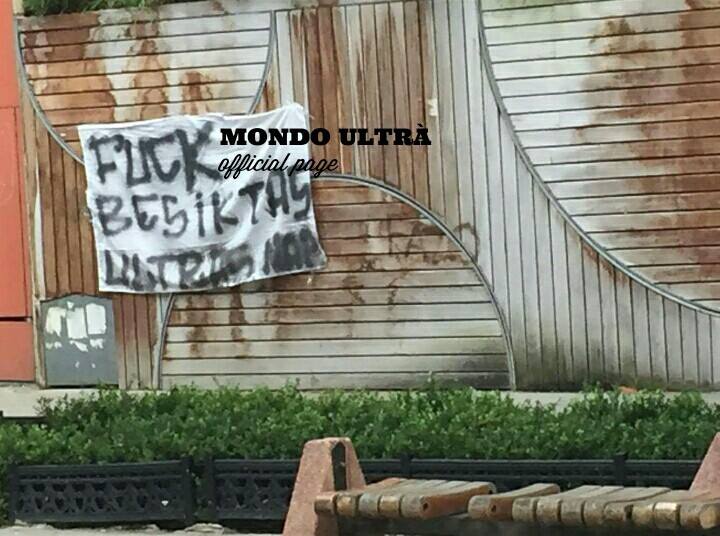 FUCK
BESIKTAS
ULTRAS NAP
MONDO ULTRÀ
official page